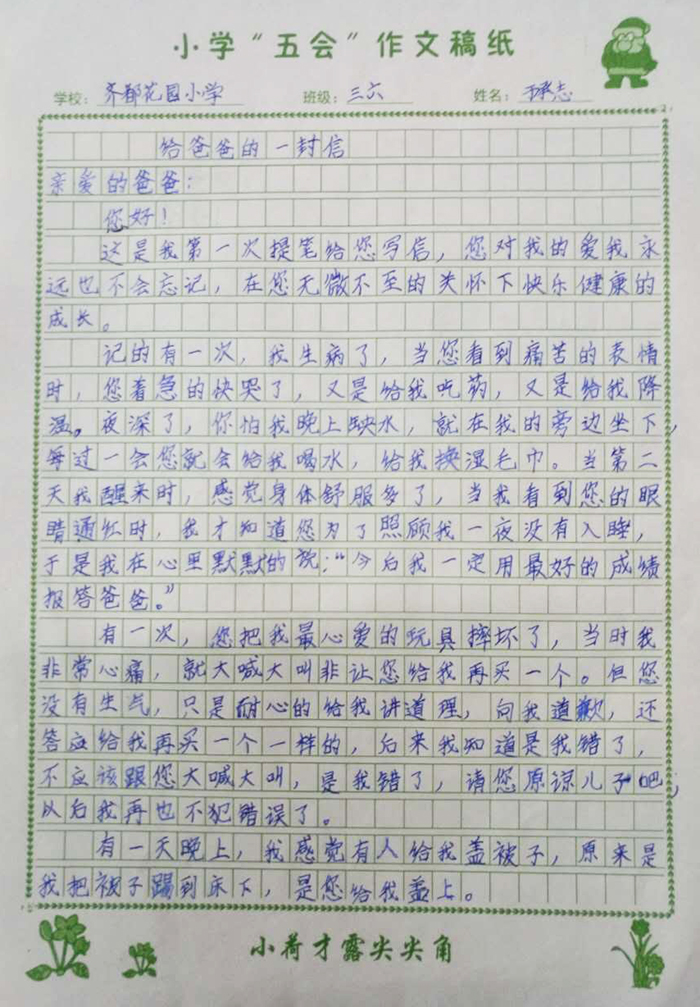 小学“五会”作文稿纸
学校：齐都花园小学 班级：三六 姓名：
给爸爸的一封信
亲爱的爸爸：
您好！
这是我第一次提笔给您写信，您对我的爱我永
远也不会忘记，在您无微不至的关怀下快乐健康的
成长。
记的有一次，我生病了，当您看到痛苦的表情
时，您着急的快哭了，又是给我吃药，又是给我降
温。夜深了，你怕我晚上缺水，就在我的旁边坐下，
每过一会您就会给我喝水，给我换湿毛巾。当第二
天我醒来时，感觉身体舒服多了，当我看到您的眼
睛通红时，我才知道您为了照顾我一夜没有入睡，
于是我在心里默默的说：“今后我一定用最好的成绩
报答爸爸。”
有一次，您把我最心爱的玩具摔坏了，当时我
非常心痛，就大喊大叫非让您给我再买一个。但您
没有生气，只是耐心的给我讲道理，向我道歉，还
答应给我再买一个一样的，后来我知道是我错了，
不应该跟您大喊大叫，是我错了，请您原谅儿子吧，
以后我再也不犯错误了。
有一天晚上，我感觉有人给我盖被子，原来是
我把被子踢到床下，是您给我盖上。
小荷才露尖尖角